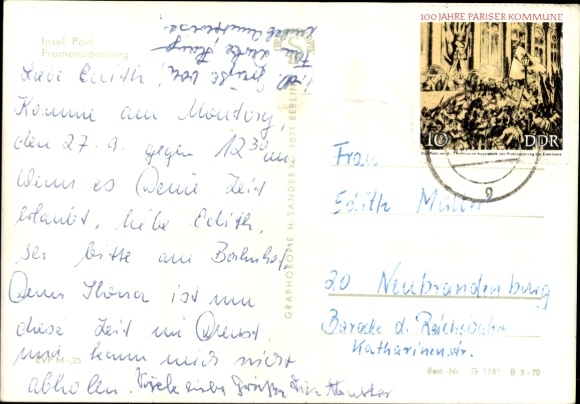 Insel Poel
Promenadenweg
Liebe Edith!
Komme am Montag,
den 27. 9. gegen 12 30 an
Wenn es Deine Zeit
erlaubt, liebe Edith,
sei bitte am Bahnhof,
Denn Ilona ist um
diese Zeit im Dienst
und kann mich nicht
abholen. Viele
EVP M -,25
GRAPHOKOPIE H. SANDER KG, 1071 BERLIN
100 JAHRE PARISER KOMMUNE
10 DDR
Frau
Edith Müller
20 Neubrandenburg
Baracke d. Reichsbahn
Katharinenstr.
Best.-Nr. G 1781 B 5/70